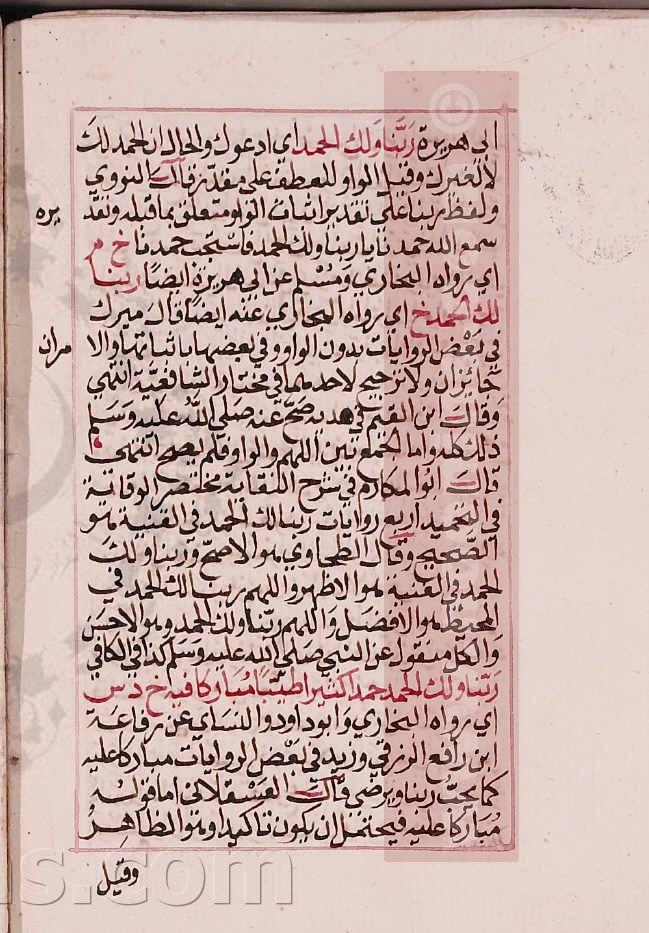 ابى هريرة ربنا ولك الحمد اي ادعوك والحال ان الحمد لك
لا لغيرك وقيل الواو للعطف على مقدر قال النووي
ولفظ ربنا على تقدير اثبات الواو متعلق بما قبله وتقد
يره
سمع الله حمدنا يا ربنا ولك الحمد فاستجب حمدنا خ م
اي رواه البخاري ومسلم عن ابى هريرة ايضا ربنا
لك الحمد خ اي رواه البخاري عنه ايضا قال ميرك
في بعض الروايات بدون الواو وفي بعضها باثباتها والا
مران
جائزان ولا ترجيح لاحدهما في مختار الشافعية انتهى
وقال ابن القيم في هديه صح عنه صلى الله عليه وسلم
ذلك كله واما الجمع بين اللهم والواو فلم يصح انتهى
قال ابو المكارم في شرح النقاية مختصر الوقاية
في التحميد اربع روايات ربنا لك الحمد في القنية هو
الصحيح وقال الطحاوي هو الاصح وربنا ولك
الحمد في القنية هو الاظهر واللهم ربنا لك الحمد في
المحيط هو الافضل واللهم ربنا ولك الحمد وهو الاحسن
والكل منقول عن النبي صلى الله عليه وسلم كذا في الكافي
ربنا ولك الحمد حمدا كثيرا طيبا مباركا فيه خ د س
اي رواه البخاري وابو داود والنساي عن رفاعة
ابن رافع الزرقي وزيد في بعض الروايات مباركا عليه
كما يحب ربنا ويرضى قال العسقلاني اما قوله
مباركا عليه فيحتمل ان يكون تاكيدا وهو الظاهر
وقيل
ns.com